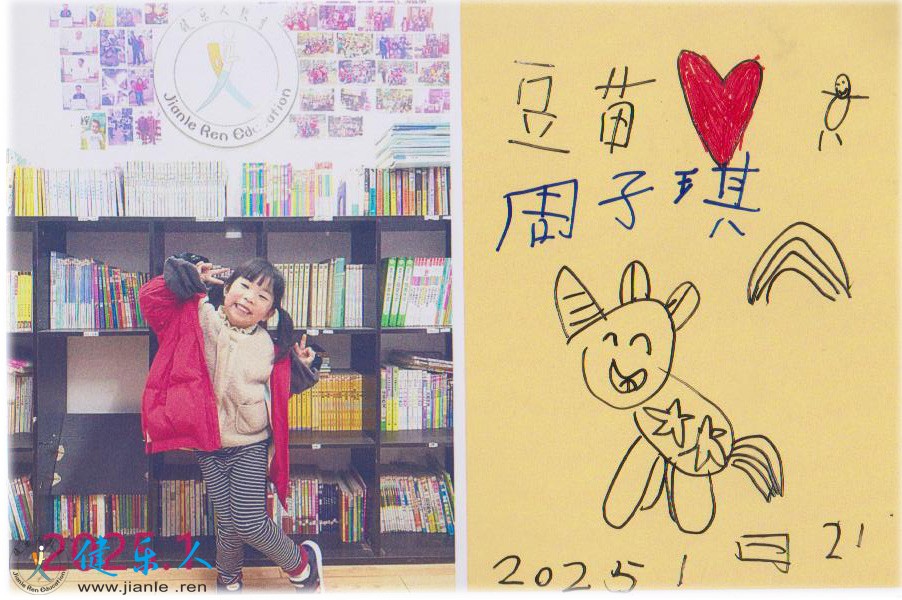 健乐人教育
Jianle Ren Education
豆苗
周子琪
2025 1 21
2025.1
健乐人
www.jianle .ren
Jianle Ren Education